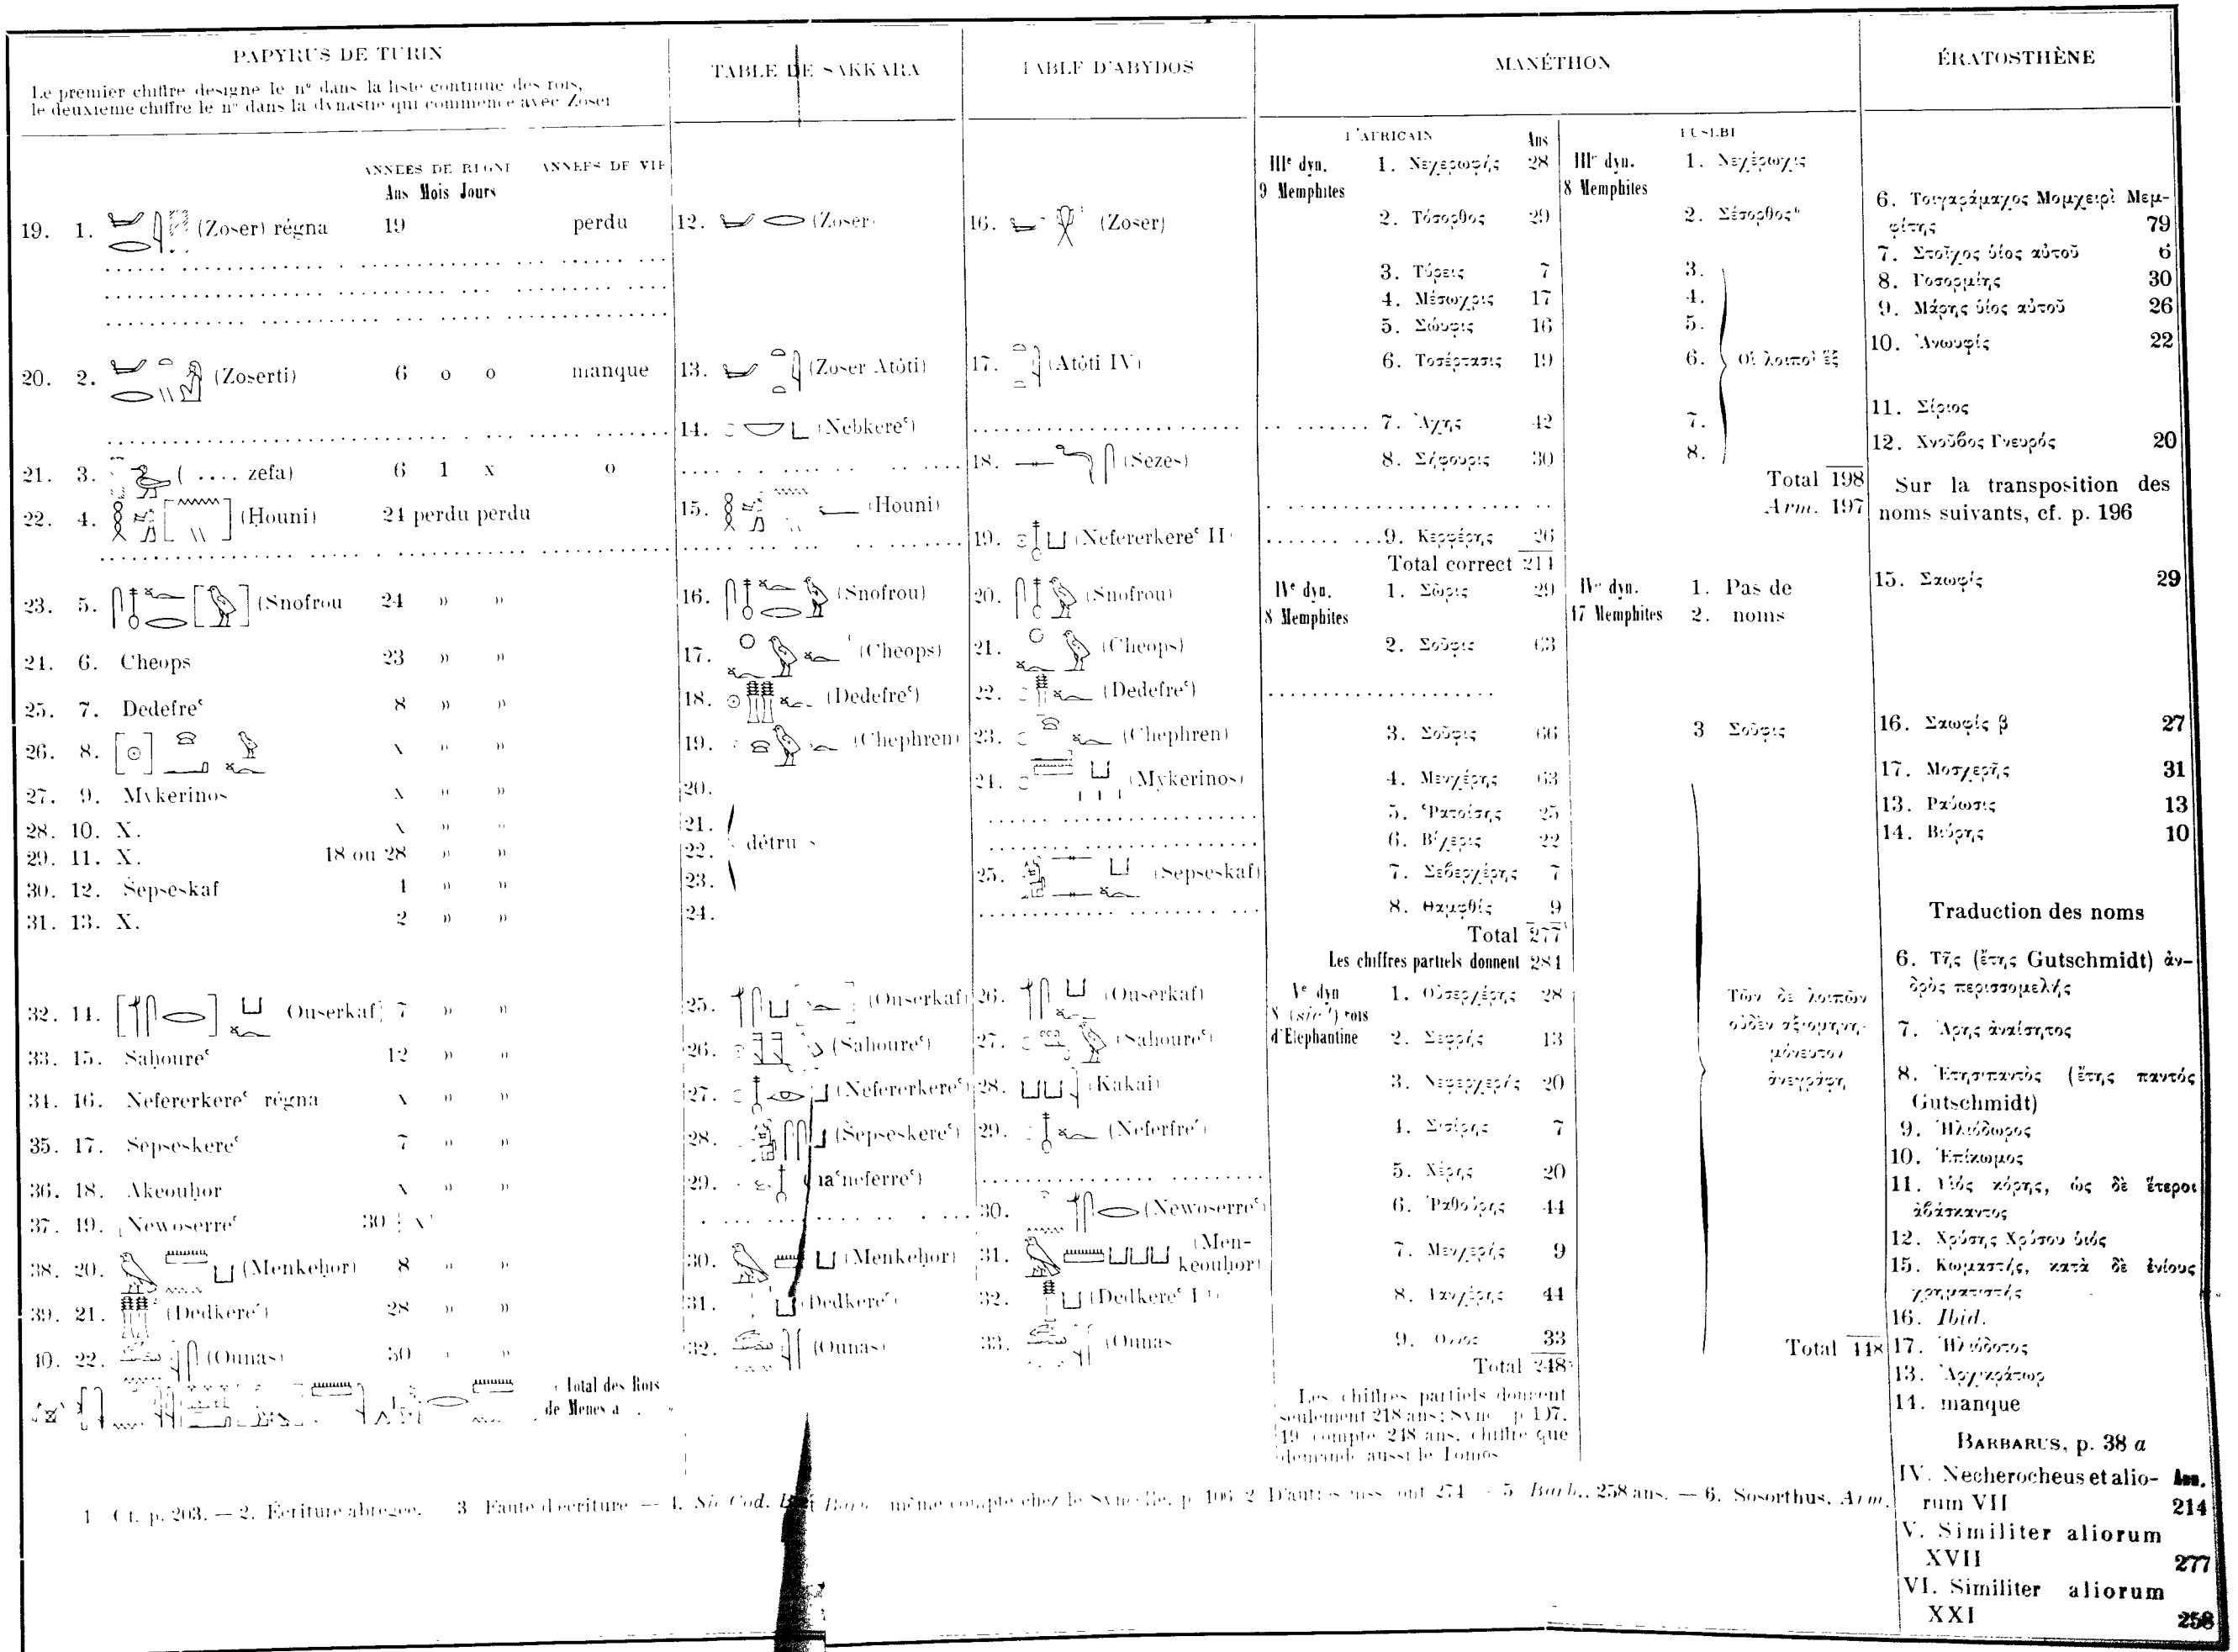 PAPYRUS DE TURIN
Le premier chiffre designe le n° dans la liste continue des rois,
le deuxieme chiffre le n° dans la dynastie qui commence avec Zoser
ANNEES DE REGNE ANNEES DE VIE
Ans Mois Jours
19. 1. (Zoser) régna 19 perdu
20. 2. (Zoserti) 6 0 0 manque
21. 3. (.... zefa) 6 1 x 0
22. 4. (Ḥouni) 24 perdu perdu
23. 5. (Snofrou 24 » »
24. 6. Cheops 23 » »
25. 7. Dedefreʿ 8 » »
26. 8. x » »
27. 9. Mykerinos x » »
28. 10. X. x » »
29. 11. X. 18 ou 28 » »
30. 12. Šepseskaf 4 » »
31. 13. X. 2 » »
32. 14. Ouserkaf 7 » »
33. 15. Saḥoureʿ 12 » »
34. 16. Nefererkereʿ régna x » »
35. 17. Šepseskereʿ 7 » »
36. 18. Akeouḥor x » »
37. 19. Newoserreʿ 30 + x
38. 20. (Menkeḥor) 8 » »
39. 21. (Dedkereʿ) 28 » »
40. 22. (Ounas) 30 » »
Total des Rois
de Menes a
TABLE DE SAKKARA
12. (Zoser)
13. (Zoser Atôti)
14. (Nebkereʿ)
15. (Ḥouni)
16. (Snofrou)
17. (Cheops)
18. (Dedefreʿ)
19. (Chephren)
20.
21.
22. détruits
23.
24.
25. (Ouserkaf)
26. (Saḥoureʿ)
27. (Nefererkereʿ)
28. (Šepseskereʿ)
29. haʿneferreʿ)
30. (Menkeḥor)
31. (Dedkereʿ)
32. (Ounas)
TABLE D'ABYDOS
16. (Zoser)
17. (Atôti IV)
18. (Sezes)
19. (Nefererkereʿ II)
20. (Snofrou)
21. (Cheops)
22. (Dedefreʿ)
23. (Chephren)
24. (Mykerinos)
25. (Šepseskaf)
26. (Ouserkaf)
27. (Saḥoureʿ)
28. (Kakai)
29. (Neferfreʿ)
30. (Newoserreʿ)
31. (Men-
keouḥor)
32. (Dedkereʿ I)
33. (Ounas
MANÉTHON
L'AFRICAIN Ans
IIIe dyn. 1. Νεχερωφής 28
9 Memphites
2. Τόσορθος 29
3. Τύρεις 7
4. Μέσωχρις 17
5. Σώυφις 16
6. Τοσέρτασις 19
7. Ἄχης 42
8. Σήφουρις 30
9. Κερφέρης 26
Total correct 214
IVe dyn. 1. Σῶρις 29
8 Memphites
2. Σοῦφις 63
3. Σοῦφις 66
4. Μενχέρης 63
5. Ῥατοίσης 25
6. Βίχερις 22
7. Σεβερχέρης 7
8. Θαμφθίς 9
Total 277
Les chiffres partiels donnent 284
Ve dyn 1. Οὐσερχέρης 28
8 (sic) rois
d'Elephantine 2. Σεφρής 13
3. Νεφερχερής 20
4. Σισίρης 7
5. Χέρης 20
6. Ῥαθούρης 44
7. Μενχερής 9
8. Τανχέρης 44
9. Ὄννος 33
Total 248
Les chiffres partiels donnent
seulement 218 ans; Sync. p 107,
19 compte 248 ans, chiffre que
demande aussi le Tomos
EUSEBE
IIIe dyn. 1. Νεχέρωχις
8 Memphites
2. Σέσορθος⁶
3.
4.
5.
6. Οἱ λοιποὶ ἕξ
7.
8.
Total 198
Arm. 197
IVe dyn. 1. Pas de
17 Memphites 2. noms
3 Σοῦφις
Τῶν δὲ λοιπῶν
οὐδὲν ἀξιομνη-
μόνευτον
ἀνεγράφη
Total 448
ÉRATOSTHÈNE
6. Τοιγαράμαχος Μομχειρὶ Μεμ-
φίτης 79
7. Στοῖχος υἱος αὐτοῦ 6
8. Γοσορμίης 30
9. Μάρης υἱος αὐτοῦ 26
10. Ἀνωυφίς 22
11. Σίριος
12. Χνοῦβος Γνευρός 20
Sur la transposition des
noms suivants, cf. p. 196
15. Σαωφίς 29
16. Σαωφίς β 27
17. Μοσχερῆς 31
13. Ραύωσις 13
14. Βιύρης 10
Traduction des noms
6. Τῆς (ἔτης Gutschmidt) ἀν-
δρὸς περισσομελής
7. Ἄρης ἀναίσητος
8. Ἐτησιπαντὸς (ἔτης παντός
Gutschmidt)
9. Ἡλιόδωρος
10. Ἐπίκωμος
11. Υἱὸς κόρης, ὡς δὲ ἕτεροι
ἀβάσκαντος
12. Χρύσης Χρύσου υἱός
15. Κωμαστής, κατὰ δὲ ἐνίους
χρηματιστής
16. Ibid.
17. Ἡλιόδοτος
13. Ἀρχικράτωρ
14. manque
BARBARUS, p. 38 a
IV. Necherocheus et alio- Ann.
rum VII 214
V. Similiter aliorum
XVII 277
VI. Similiter aliorum
XXI 258
1 Cf. p. 203. — 2. Écriture abrégée. 3 Faute d'écriture — 4. Sic Cod. B et Barb. même compte chez le Syncelle, p. 106 2 D'autres mss. ont 274 — 5 Barb., 258 ans. — 6. Sosorthus, Arm.